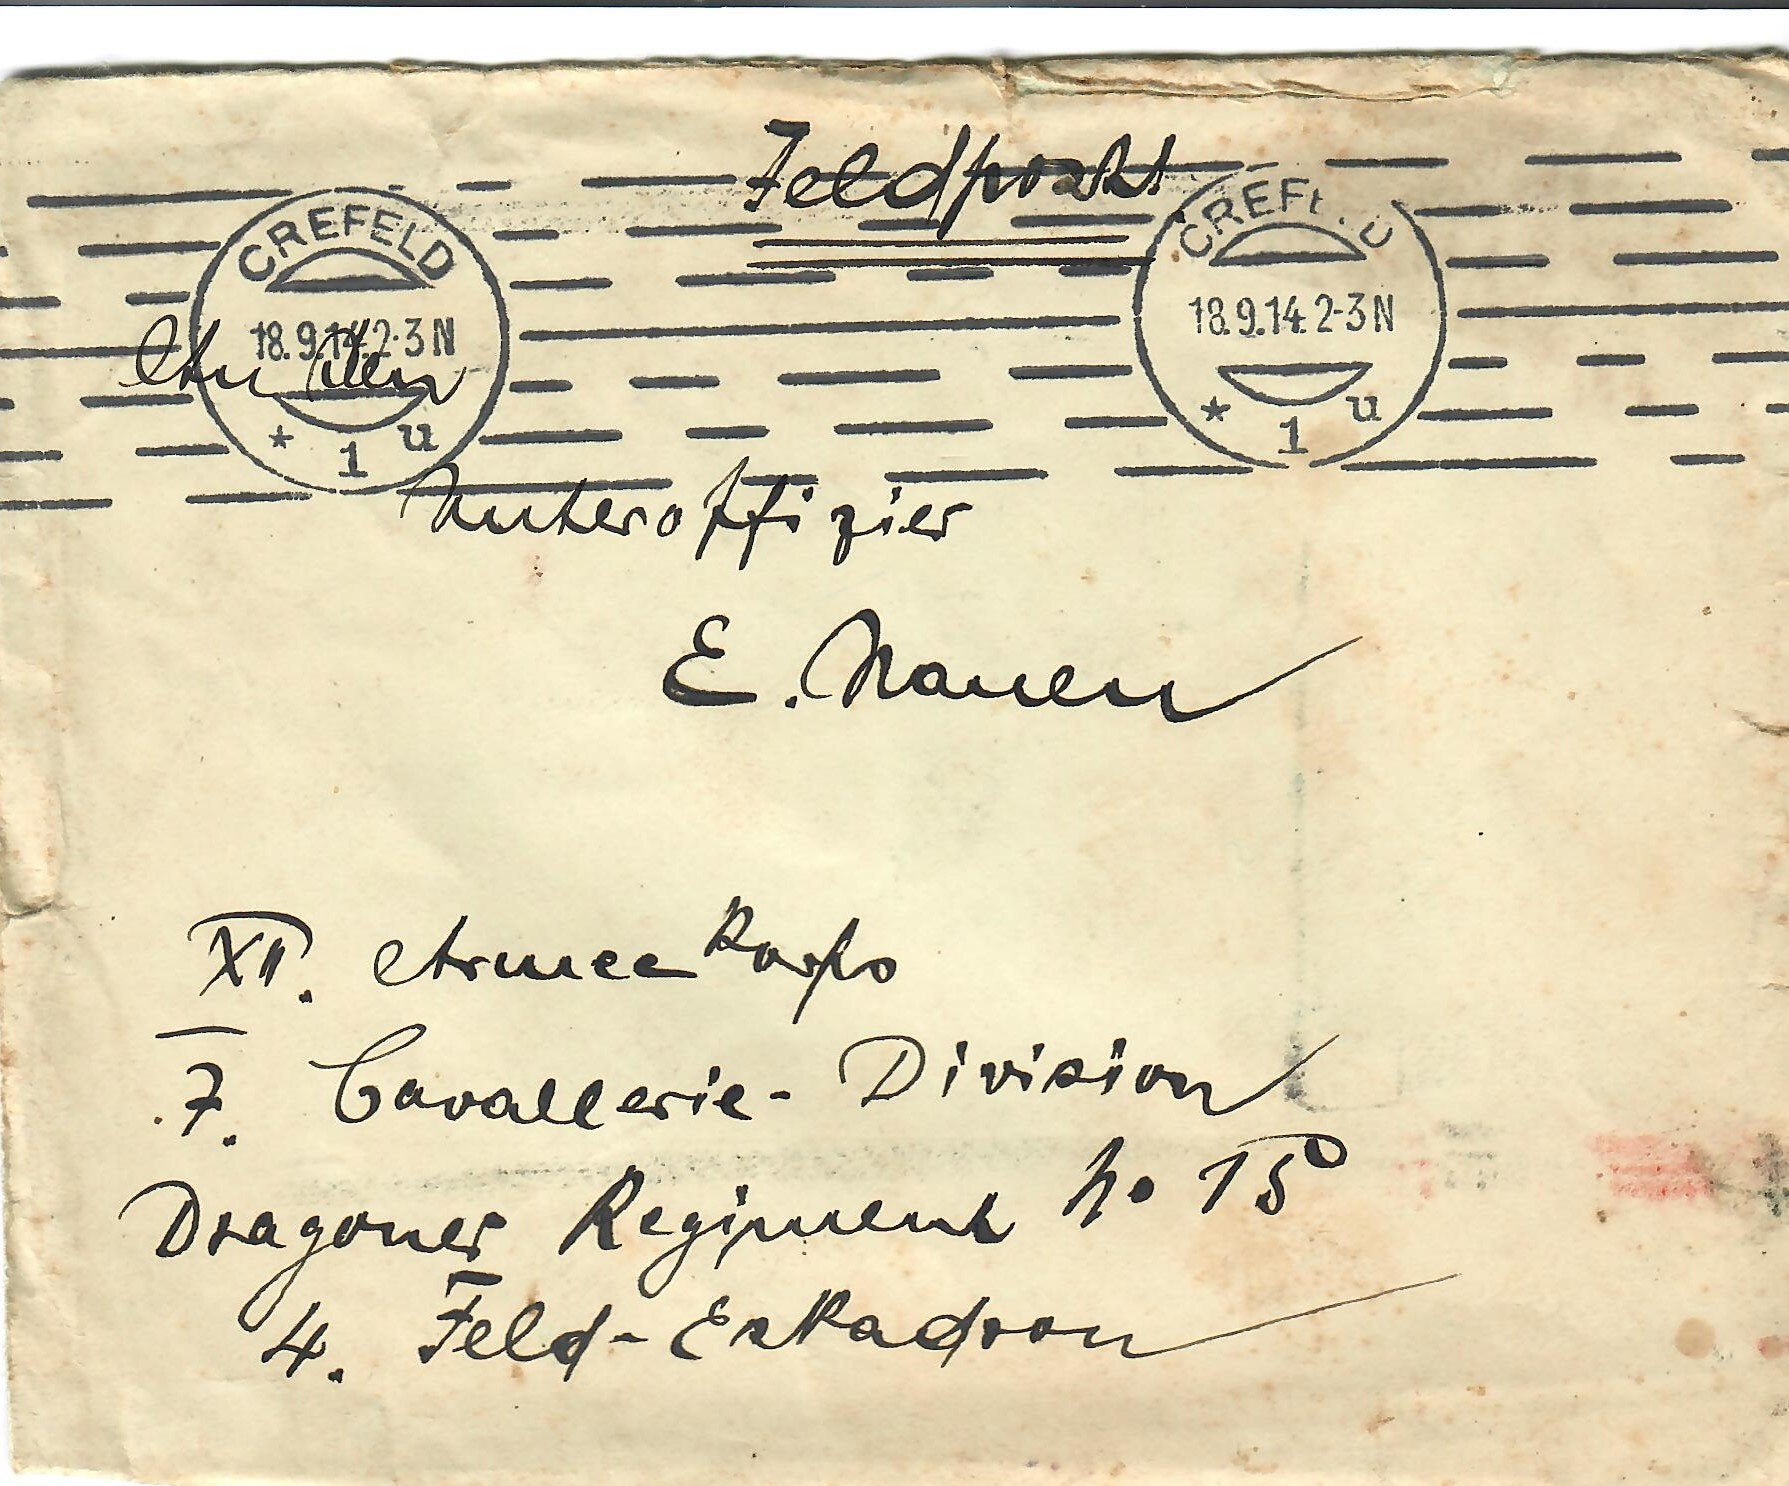 Feldpost
CREFELD
18.9.14.2-3N
* 1 u
CREFELD
18.9.14.2-3N
* 1 u
An den
Unteroffizier
E. Nauen
Armee Korps
7. Cavallerie-Division
Dragoner Regiment No 15
4. Feld-Eskadron